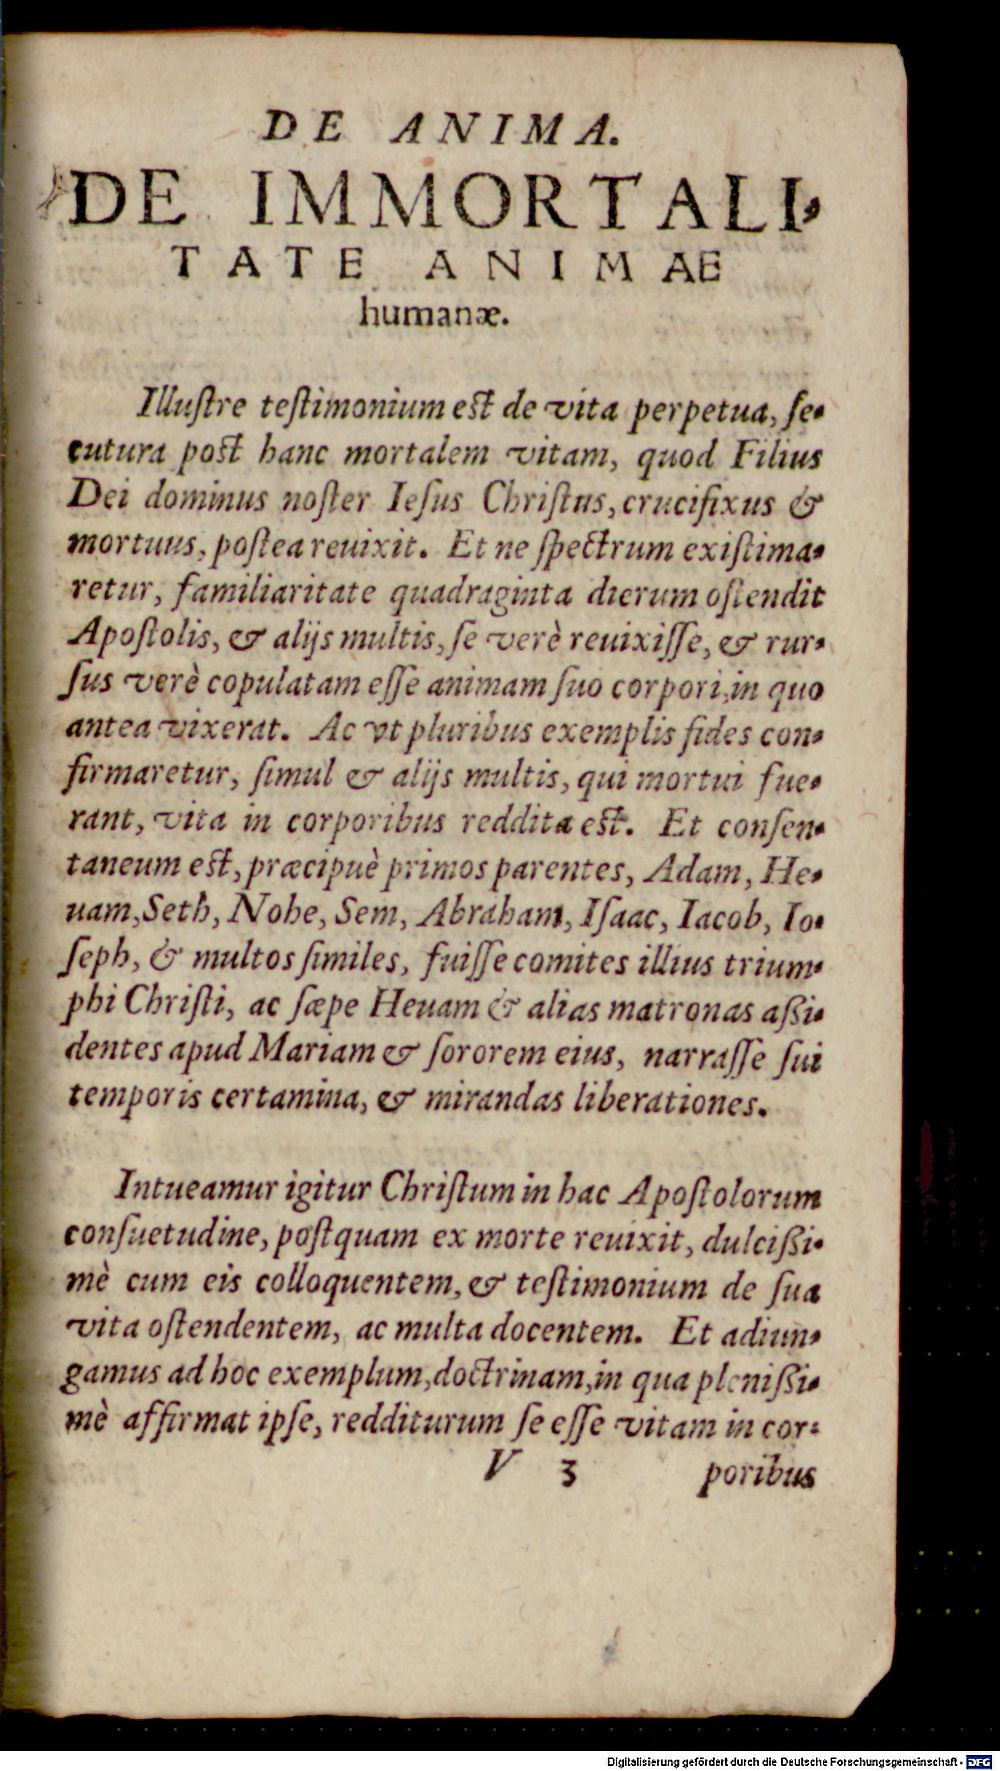 DE ANIMA.
DE IMMORTALI-
TATE ANIMAE
humanæ.
Illuſtre teſtimonium eſt de vita perpetua, ſe-
cutura poſt hanc mortalem vitam, quod Filius
Dei dominus noſter Ieſus Chriſtus, crucifixus &
mortuus, poſtea reuixit. Et ne ſpectrum exiſtima-
retur, familiaritate quadraginta dierum oſtendit
Apoſtolis, & alijs multis, ſe verè reuixiſſe, & rur-
ſus verè copulatam eſſe animam ſuo corpori, in quo
antea vixerat. Ac vt pluribus exemplis fides con-
firmaretur, ſimul & alijs multis, qui mortui fue-
rant, vita in corporibus reddita eſt. Et conſen-
taneum eſt, præcipuè primos parentes, Adam, He-
uam, Seth, Nohe, Sem, Abraham, Iſaac, Iacob, Io-
ſeph, & multos ſimiles, fuiſſe comites illius trium-
phi Chriſti, ac ſæpe Heuam & alias matronas aßi-
dentes apud Mariam & ſororem eius, narraſſe ſui
temporis certamina, & mirandas liberationes.
Intueamur igitur Chriſtum in hac Apoſtolorum
conſuetudine, poſtquam ex morte reuixit, dulcißi-
mè cum eis colloquentem, & teſtimonium de ſua
vita oſtendentem, ac multa docentem. Et adiun-
gamus ad hoc exemplum, doctrinam, in qua plenißi-
mè affirmat ipſe, redditurum ſe eſſe vitam in cor-
V 3 poribus
Digitalisierung gefördert durch die Deutsche Forschungsgemeinschaft - DFG